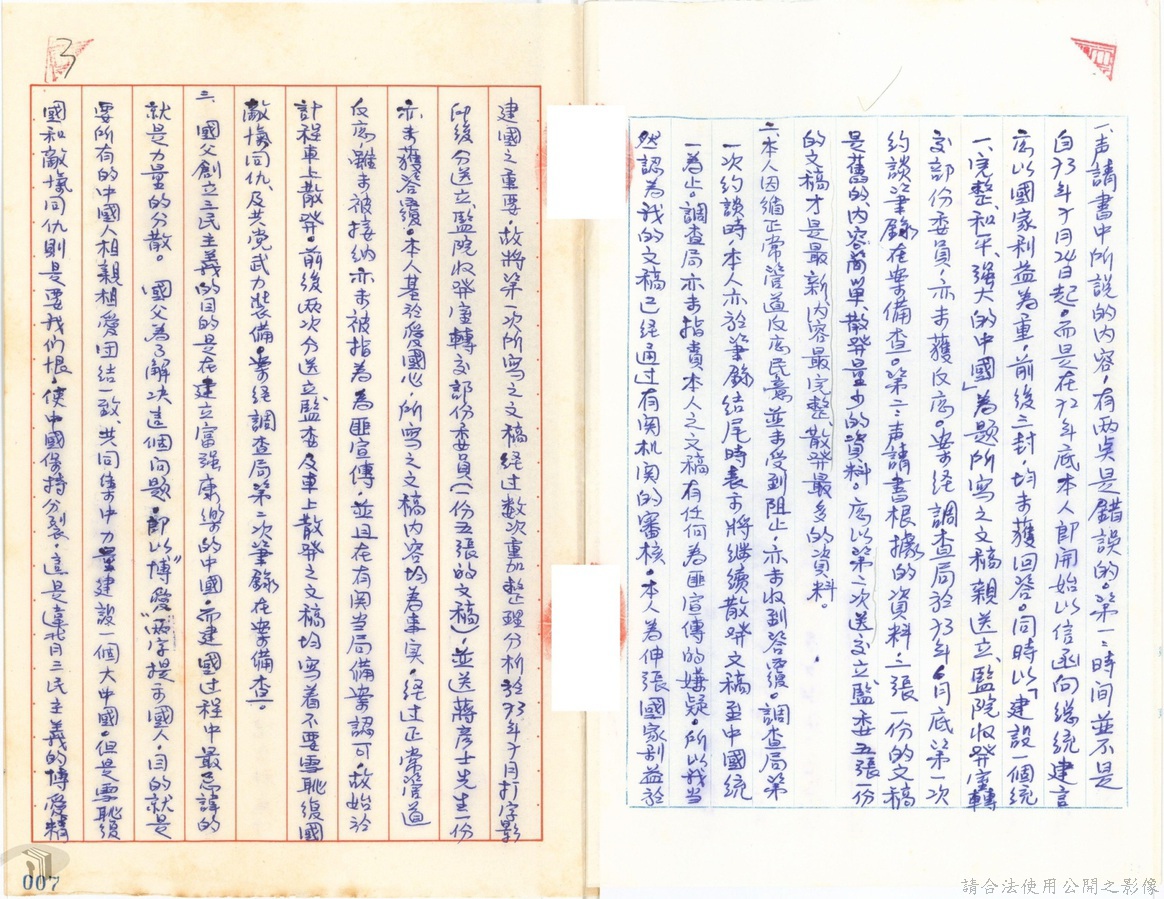 一、声請書中所說的內容，有兩点是錯誤的。第一：時间並不是
自73年5月24日起。而是在72年底本人即開始以信函向總統建言
應以國家利益為重，前後三封均未獲回答。同時以「建設一個統
一、完整、和平、強大的中國」為題所寫之文稿親送立、監院收發室轉
交部份委員，亦未獲反應。案經調查局於73年6月底第一次
約談筆錄在案備查。第二：声請書根據的資料三張一份的文稿
是舊的、內容简單、散發量少的資料。應以第二次送交立、監委五張一份
的文稿才是最新、內容最完整、散發最多的資料。
二、本人因循正常管道反應民意並未受到阻止，亦未收到答覆。調查局第
一次約談時，本人亦於筆錄結尾時表示將继續散發文稿至中國統
一為止。調查局亦未指責本人之文稿有任何為匪宣傳的嫌疑。所以我当
然認為我的文稿已經通过有関机関的審核。本人為伸張國家利益於
建國之重要，故將第一次所寫之文稿經过数次重加整理分析於73年5月打字影
印後分送立、監院收發室轉交部份委員(一份五張的文稿)，並送蔣彥士先生一份
亦未獲答覆。本人基於愛國心，所寫之文稿內容均為事实，經过正常管道
反應，雖未被接納亦未被指為為匪宣傳，並且在有関当局備案認可，故始於
計程車上散發。前後兩次分送立、監委及車上散發之文稿均寫着不要雪恥復國
敵愾同仇、及共党武力裝備。案經調查局第二次筆錄在案備查。
三、國父創立三民主義的目的是在建立富强康樂的中國，而建國过程中最忌諱的
就是力量的分散。 國父為了解決這個问題，即以"博愛"兩字提示國人，目的就是
要所有的中國人相親相愛团结一致、共同集中力量建設一個大中國。但是雪恥復
國和敵愾同仇則是要我们恨，使中國保持分裂，這是違背三民主義的博愛精
3
007
請合法使用公開之影像